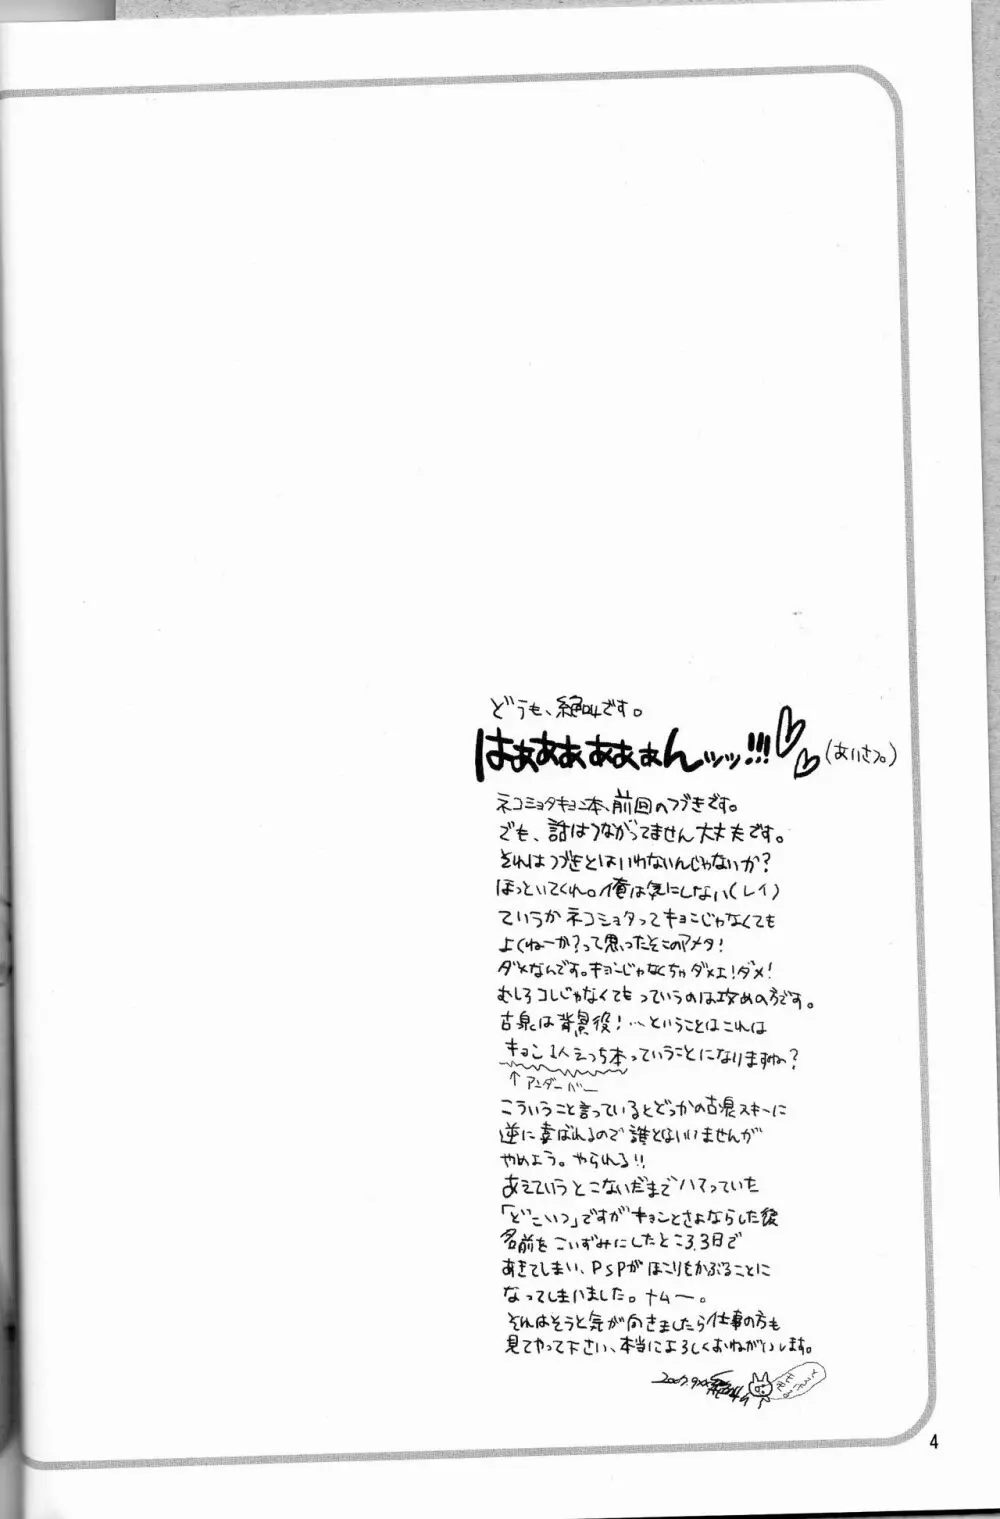 どうも、絶叫です。
はぁあぁあぁぁんッッ!!!
(あいさつ。)
ネコショタキョン本、前回のつづきです。
でも、話はつながってません大丈夫です。
それはつづきとはいわないんじゃないか?
ほっといてくれ。俺は気にしない(レイ)
ていうかネコショタってキョンじゃなくても
よくねーか?って思ったそこのアメタ!
ダメなんです。キョンじゃなくちゃダメェ!ダメ!
むしろコレじゃなくてもっていうのは攻めの方です。
古泉は背景役!…ということはこれは
キョン1人えっち本っていうことになりますねぇ?
↑アンダーバー
こういうこと言っているとどっかの古泉スキーに
逆に喜ばれるので誰とはいいませんが
やめよう。やられる!!
あえていうとこないだまでハマっていた
「どこいつ」ですがキョンとさよならした後
名前をこいずみにしたところ3日で
あきてしまい、PSPがほこりをかぶることに
なってしまいました。ナムー。
それはそうと気が向きましたら仕事の方も
見てやって下さい、本当によろしくおねがいします。
2007.9
4